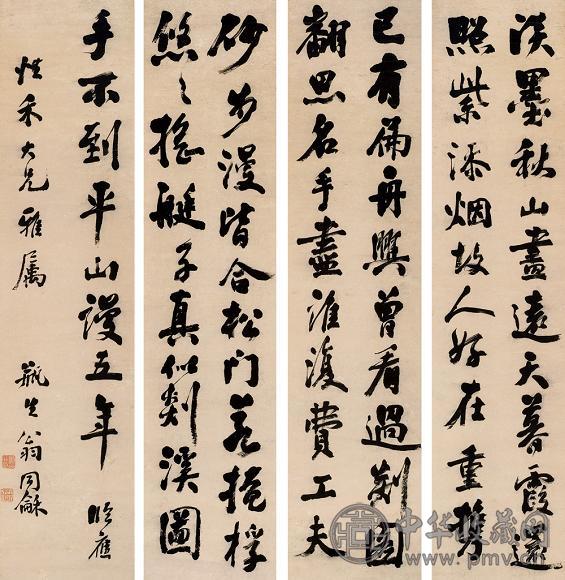 淡墨秋山盡遠天暮霞還
照紫添烟故人好在重攜
手不到平山謾五年
已有扁舟興曾看過剡圖
翻思名手盡誰復費工夫
砂步漫皆合松門若掩桴
悠〻搖艇子真似剡溪圖
禾大兄雅屬 瓶生翁同龢
中华收藏网
www.pmv.cn